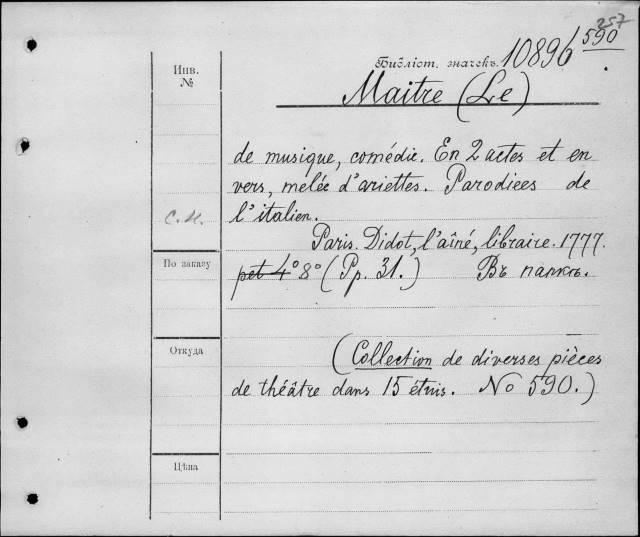 257
590
Библіот. значекъ. 10896
Инв.
№
Maitre (Le)
de musique, comédie. En 2 actes et en
vers, melée d'ariettes. Parodiees de
l'italien.
С. М.
Paris. Didot, l'aîné, libraire. 1777.
По заказу
pet 4° 8° (Pp. 31.) Въ папкѣ.
Откуда
(Collection de diverses pièces
de théâtre dans 15 étuis. No 590.)
Цѣна